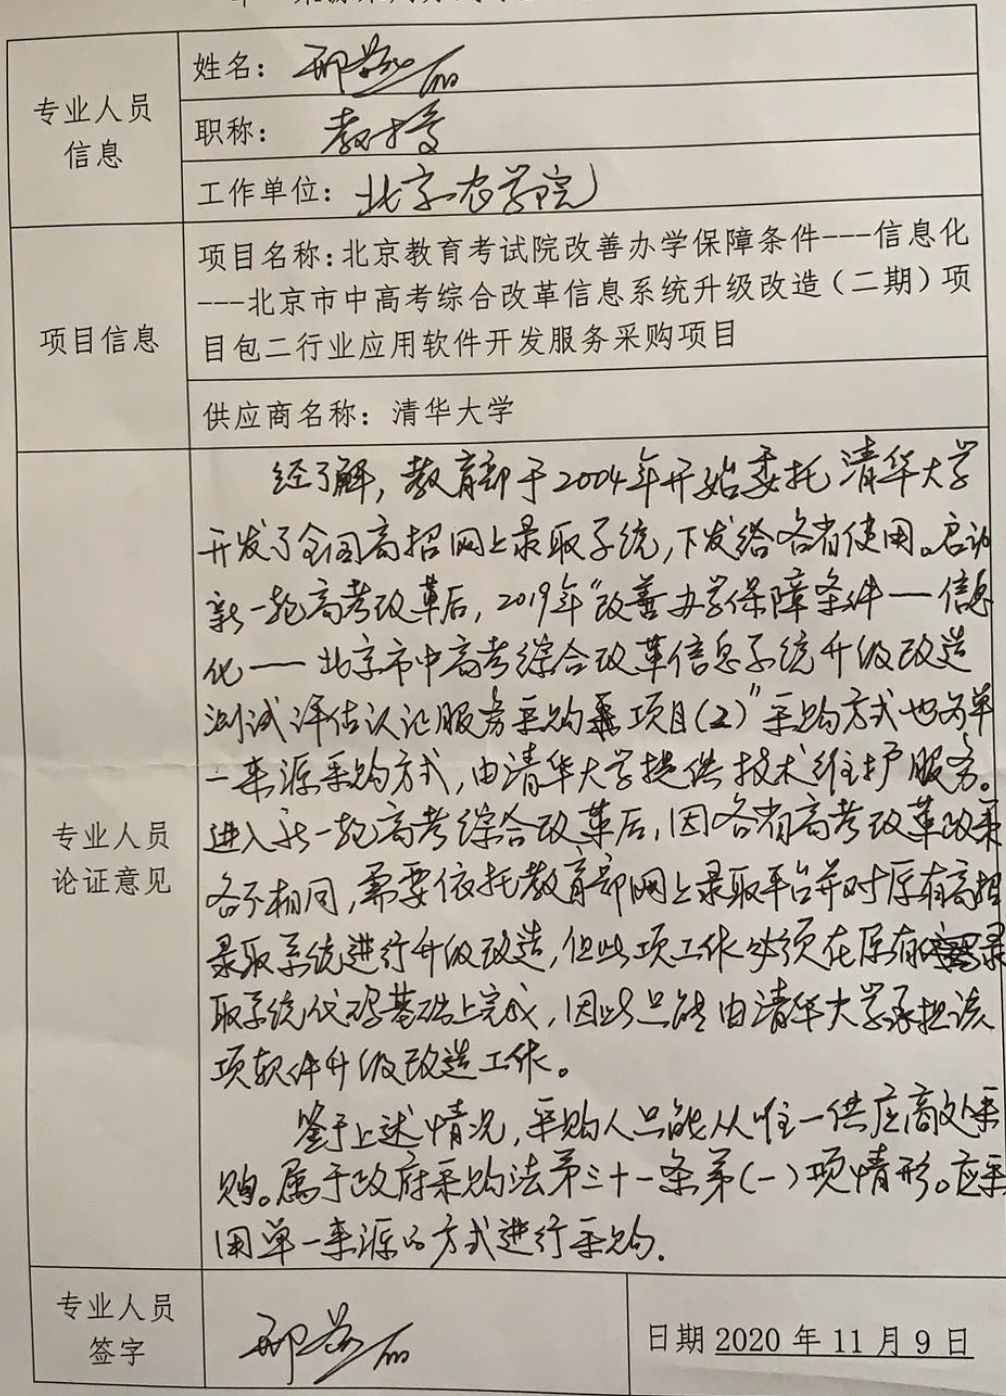 专业人员
信息
姓名：
职称： 教授
工作单位：北京农学院
项目信息
项目名称：北京教育考试院改善办学保障条件---信息化
---北京市中高考综合改革信息系统升级改造（二期）项
目包二行业应用软件开发服务采购项目
供应商名称：清华大学
专业人员
论证意见
经了解，教育部于2004年开始委托清华大学
开发了全国高招网上录取系统，下发给各省使用。启动
新一轮高考改革后，2019年“改善办学保障条件—信息
化——北京市中高考综合改革信息系统升级改造
测试评估认证服务采购项目(2)”采购方式也为单
一来源采购方式，由清华大学提供技术维护服务。
进入新一轮高考综合改革后，因各省高考改革政策
各不相同，需要依托教育部网上录取平台并对原有高招
录取系统进行升级改造，但此项工作必须在原有录
取系统代码基础上完成，因此只能由清华大学承担该
项软件升级改造工作。
鉴于上述情况，采购人只能从唯一供应商处采
购。属于政府采购法第三十一条第(一)项情形。应采
用单一来源的方式进行采购.
专业人员
签字
日期 2020 年 11 月 9 日